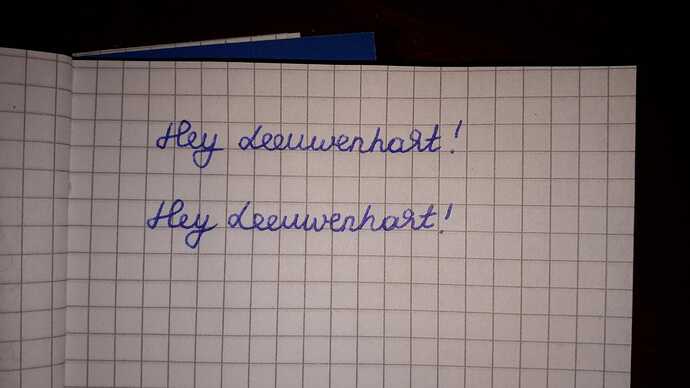 Hey Leeuwenhart!
Hey Leeuwenhart!